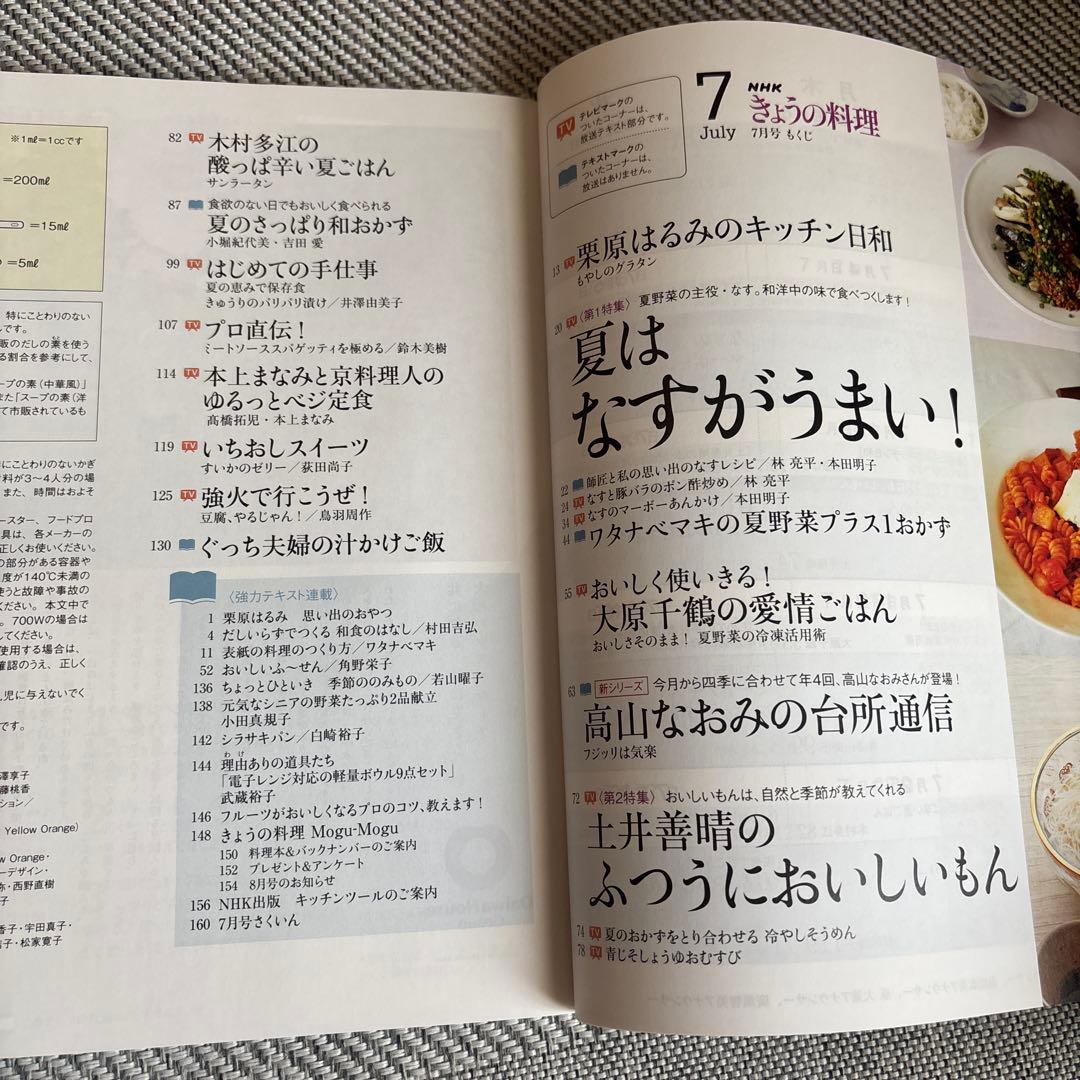 ※1mℓ＝1ccです
＝200mℓ
＝15mℓ
＝5mℓ
特にことわりのない
です。
販のだしの素を使う
る割合を参考にして、
ープの素（中華風）」
また「スープの素（洋
て市販されているも
にことわりのないかぎ
材料が3〜4人分の場
また、時間はおよそ
ースター、フードプロ
具は、各メーカーの
正しくお使いください。
の部分がある容器や
度が140℃未満の
使うと故障や事故の
ください。本文中で
。700Wの場合は
してください。
使用する場合は、
確認のうえ、正しく
児に与えないでく
です。
澤享子
藤桃香
ション／
Yellow Orange）
w Orange・
ーデザイン・
弥・西野直樹
子
香子・宇田真子・
子・松家寛子
82 TV 木村多江の
酸っぱ辛い夏ごはん
サンラータン
87 食欲のない日でもおいしく食べられる
夏のさっぱり和おかず
小堀紀代美・吉田 愛
99 TV はじめての手仕事
夏の恵みで保存食
きゅうりのパリパリ漬け／井澤由美子
107 TV プロ直伝！
ミートソーススパゲッティを極める／鈴木美樹
114 TV 本上まなみと京料理人の
ゆるっとベジ定食
髙橋拓児・本上まなみ
119 TV いちおしスイーツ
すいかのゼリー／荻田尚子
125 TV 強火で行こうぜ！
豆腐、やるじゃん！／鳥羽周作
130 ぐっち夫婦の汁かけご飯
〈強力テキスト連載〉
1 栗原はるみ 思い出のおやつ
4 だしいらずでつくる 和食のはなし／村田吉弘
11 表紙の料理のつくり方／ワタナベマキ
52 おいしいふ〜せん／角野栄子
136 ちょっとひといき 季節ののみもの／若山曜子
138 元気なシニアの野菜たっぷり2品献立
小田真規子
142 シラサキパン／白崎裕子
わけ
144 理由ありの道具たち
「電子レンジ対応の軽量ボウル9点セット」
武蔵裕子
146 フルーツがおいしくなるプロのコツ、教えます！
148 きょうの料理 Mogu-Mogu
150 料理本＆バックナンバーのご案内
152 プレゼント＆アンケート
154 8月号のお知らせ
156 NHK出版 キッチンツールのご案内
160 7月号さくいん
TV テレビマークの
ついたコーナーは、
放送テキスト部分です。
テキストマークの
ついたコーナーは、
放送はありません。
7
July
NHK
きょうの料理
7月号 もくじ
13 TV 栗原はるみのキッチン日和
もやしのグラタン
20 TV 〈第1特集〉 夏野菜の主役・なす。和洋中の味で食べつくします！
夏は
なすがうまい！
22 師匠と私の思い出のなすレシピ／林 亮平・本田明子
24 TV なすと豚バラのポン酢炒め／林 亮平
34 TV なすのマーボーあんかけ／本田明子
44 ワタナベマキの夏野菜プラス1おかず
55 TV おいしく使いきる！
大原千鶴の愛情ごはん
おいしさそのまま！ 夏野菜の冷凍活用術
63 新シリーズ 今月から四季に合わせて年4回、高山なおみさんが登場！
高山なおみの台所通信
フジッリは気楽
72 TV 〈第2特集〉 おいしいもんは、自然と季節が教えてくれる
土井善晴の
ふつうにおいしいもん
74 TV 夏のおかずをとり合わせる 冷やしそうめん
78 TV 青じそしょうゆおむすび